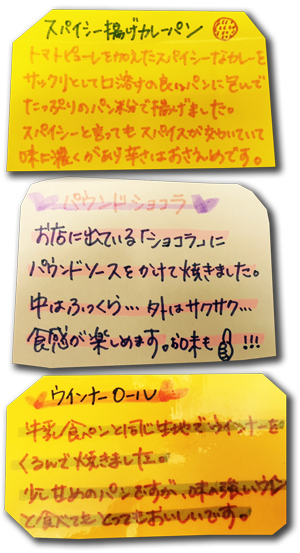 スパイシー揚げカレーパン
トマトピューレを加えたスパイシーなカレーを
サックリとして口溶すの良いパンに包んで
たっぷりのパン粉で揚げました。
スパイシーと言ってもスパイスが効いていて
味に深くがあり辛さはおさえめです。
パウンドショコラ
お店に出ている「ショコラ」に
パウンドソースをかけて焼きました。
中はふっくら…外はサクサク…
食感が楽しめます。お味も !!!
ウインナーロール
牛乳食パンと同じ生地でウインナーを
くるんで焼きました。
少し甘めのパンですが、味の強いウイン
と食べてもとってもおいしいです。